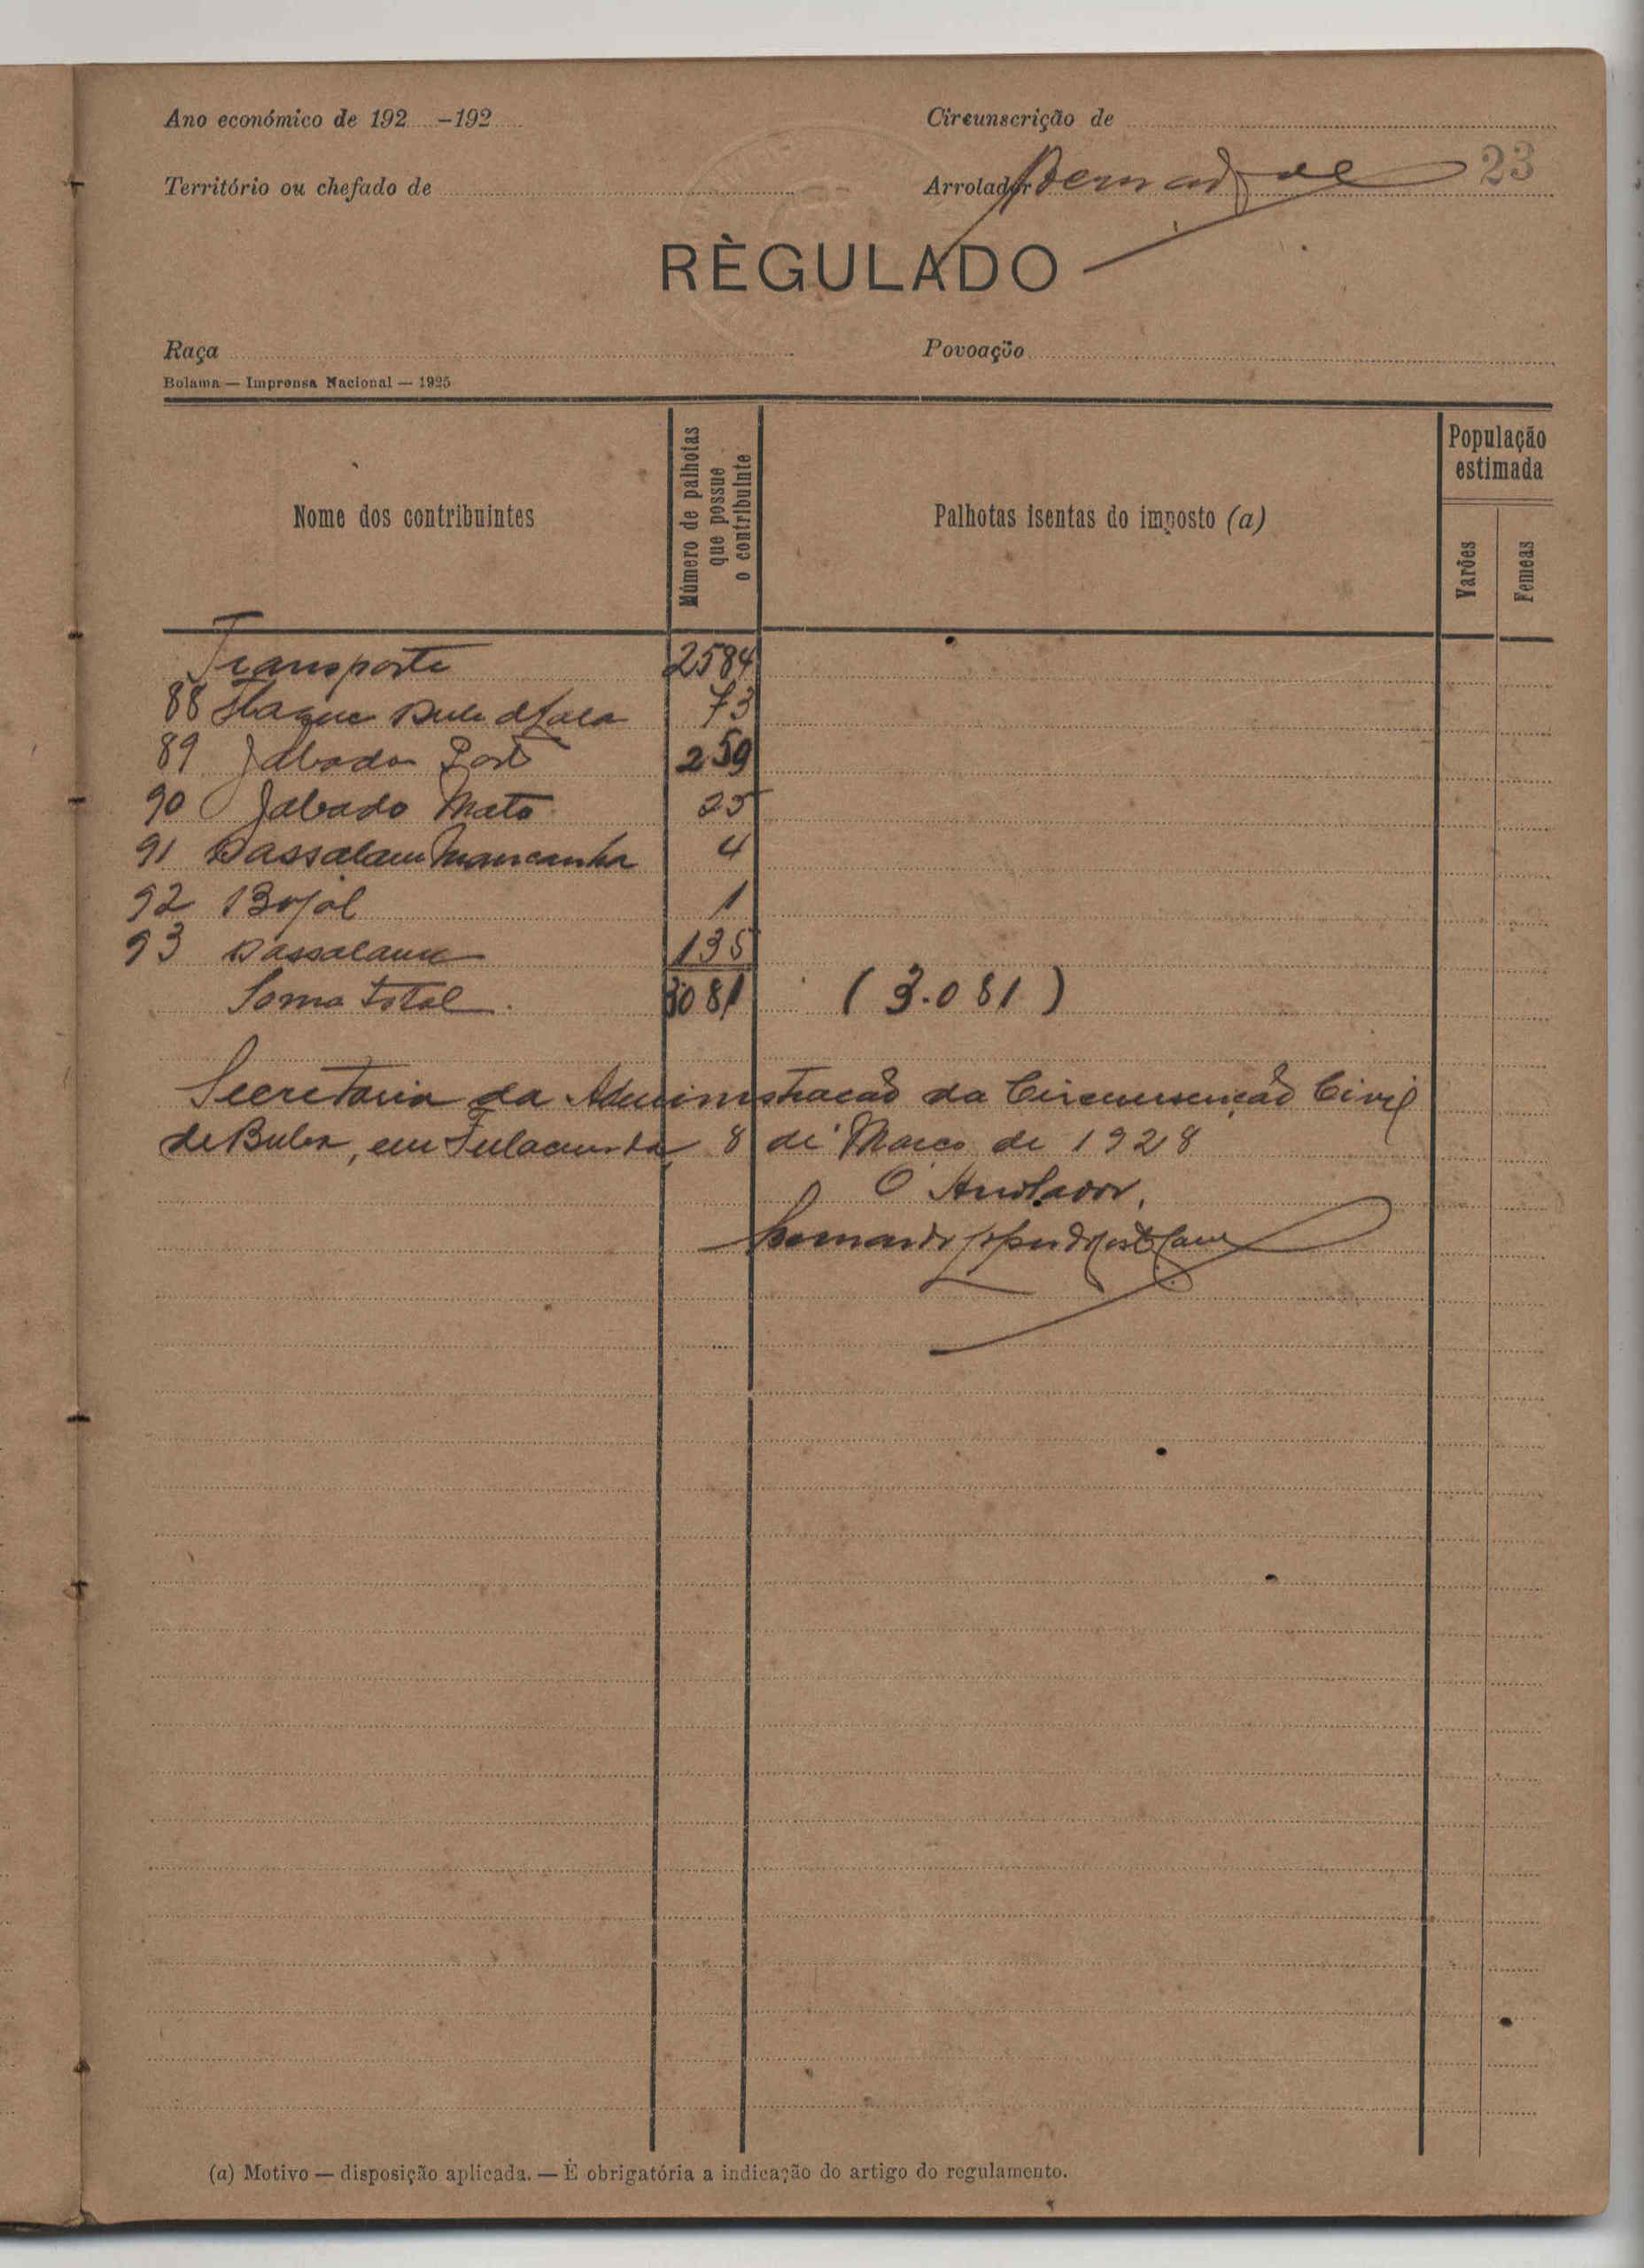 Ano económico de 192 -192
Circunscrição de
23
Território ou chefado de
Arrolador
RÈGULADO
Raça
Povoação
Bolama — Imprensa Nacional — 1925
Nome dos contribuintes
Número de palhotas que possue o contribuinte
Palhotas isentas do imposto (a)
População estimada
Varões
Femeas
Transporte 2584
88 73
89 Jabada Porto 259
90 Jabado Mato 25
91 Dassalam Mancanha 4
92 Bojol 1
93 Dassalame 135
Soma total. 3081 (3.081)
Secretaria da Administracão da Circunscrição Civil
de Buba, em Fulacunda, 8 de Março de 1928
O Arrolador,
(a) Motivo — disposição aplicada. — É obrigatória a indicação do artigo do regulamento.